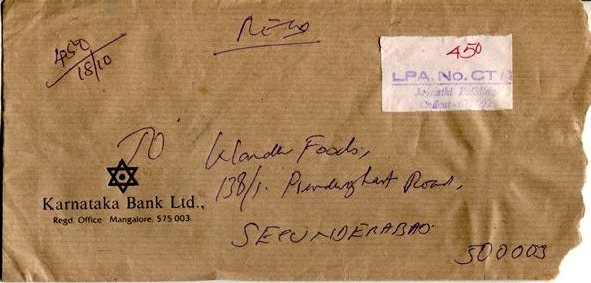 450
18/10
REGD
450
LPA. No. CT/
Building
Calicut
TO
Foods,
138/1. Road,
SECUNDERABAD.
500003
Karnataka Bank Ltd.,
Regd. Office Mangalore. 575 003